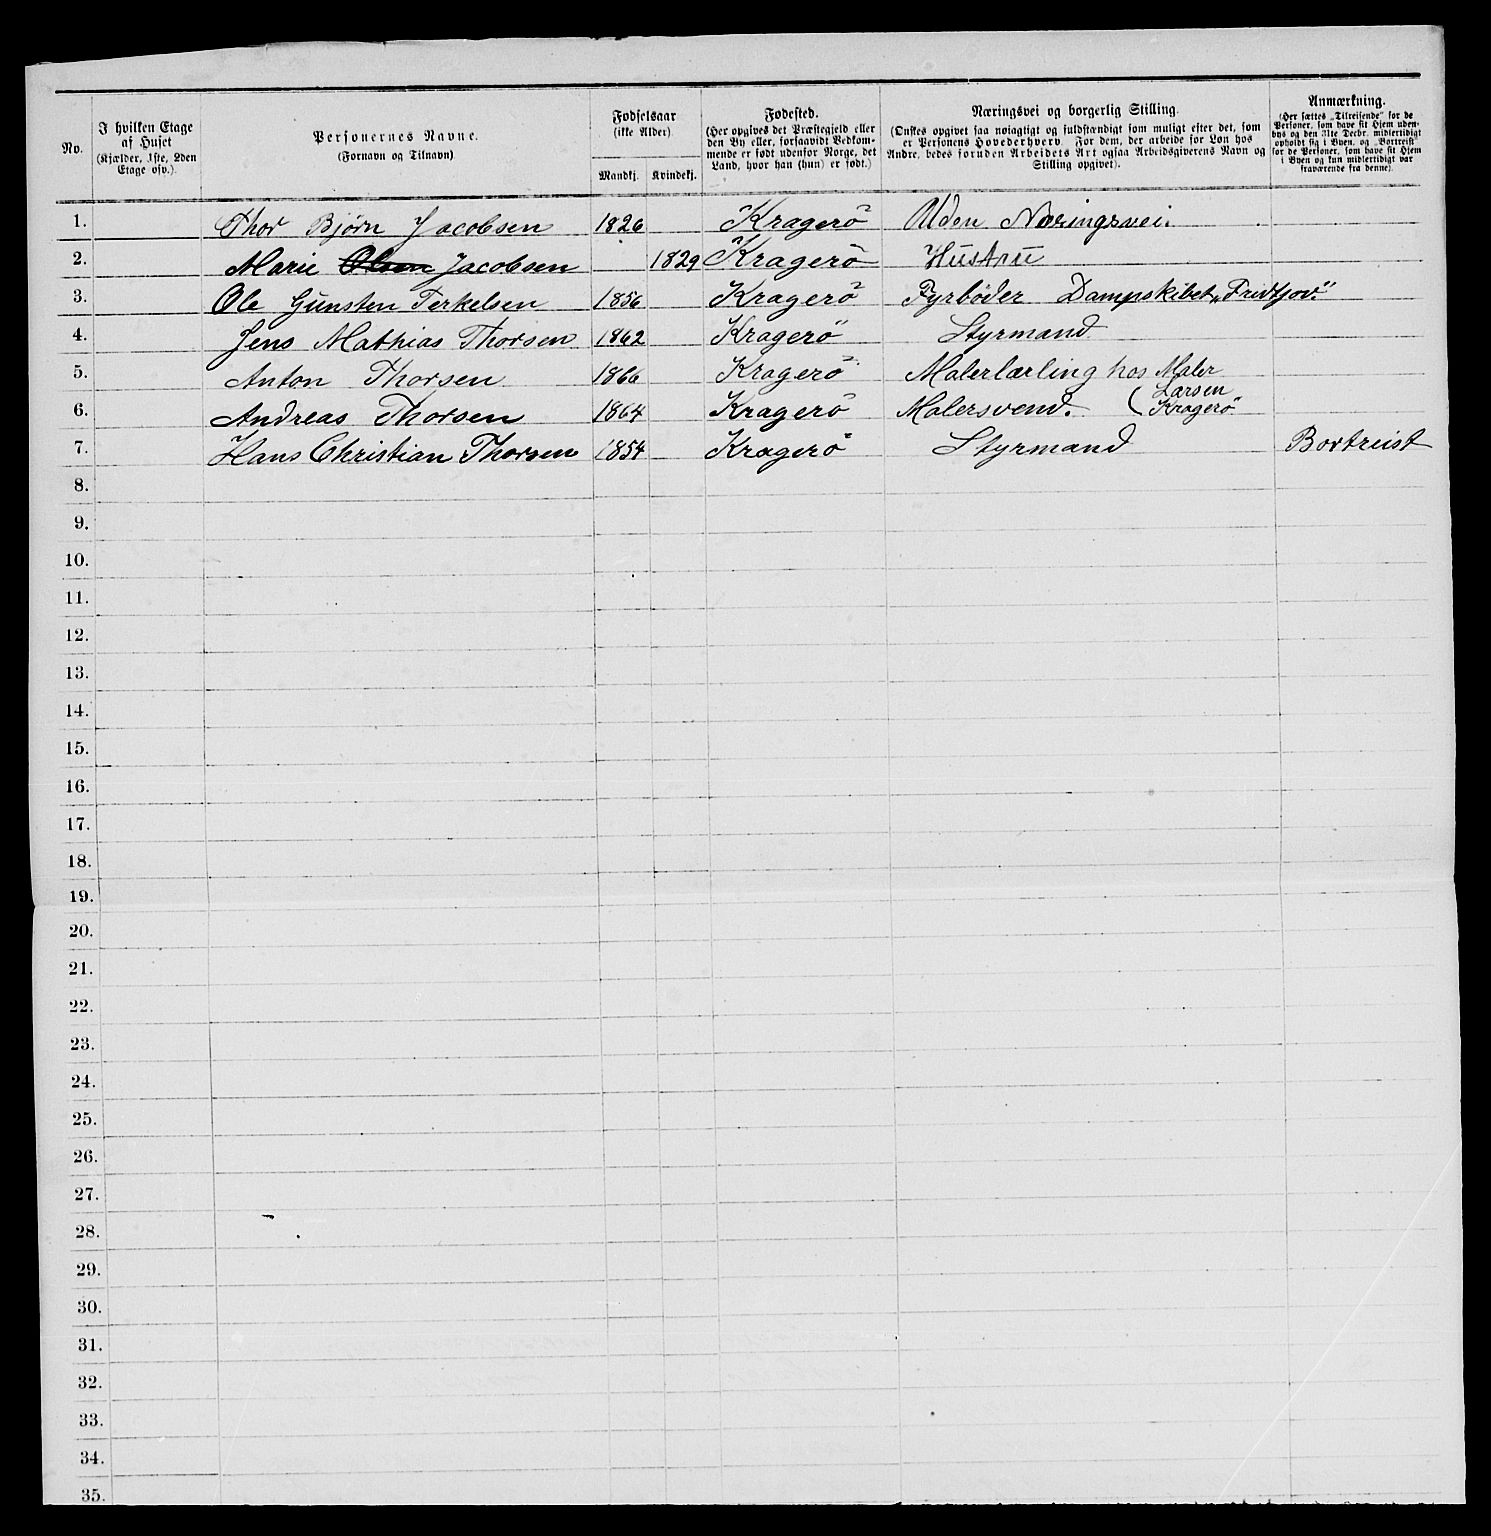 No.
I hvilken Etage
af Huset
(Kjælder, 1ste, 2den
Etage osv.)
Personernes Navne.
(Fornavn og Tilnavn)
Fødselsaar
(ikke Alder)
Mandkj.
Kvindekj.
Fødested.
(Her opgives det Præstegjeld eller
den By eller, forsaavidt Vedkom-
mende er født udenfor Norge, det
Land, hvor han (hun) er født.)
Næringsvei og borgerlig Stilling.
(Ønskes opgivet saa nøiagtigt og fuldstændigt som muligt efter det, som
er Personens Hovederhverv. For dem, der arbeide for Løn hos
Andre, bedes foruden Arbeidets Art ogsaa Arbeidsgiverens Navn og
Stilling opgivet).
Anmærkning.
(Her sættes „Tilreisende" for de
Personer, som have sit Hjem uden-
bys og den 31te Decbr. midlertidigt
opholdt sig i Byen, og „Bortreist"
for de Personer, som have sit Hjem
i Byen og kun midlertidigt var
fraværende fra denne).
1. Thor Bjørn Jacobsen 1826 Kragerö Uden Næringsvei.
2. Marie Olsen Jacobsen 1829 Kragerö Hustru
3. Ole Gunsten Terkelsen 1856 Kragerö Fyrböder Dampskibet „Fridtjov."
4. Jens Mathias Thorsen 1862 Kragerö Styrmand
5. Anton Thorsen 1866 Kragerö Malerlærling hos Maler
Larsen
6. Andreas Thorsen 1864 Kragerö Malersvend. (Kragerö
7. Hans Christian Thorsen 1854 Kragerö Styrmand Bortreist
8.
9.
10.
11.
12.
13.
14.
15.
16.
17.
18.
19.
20.
21.
22.
23.
24.
25.
26.
27.
28.
29.
30.
31.
32.
33.
34.
35.